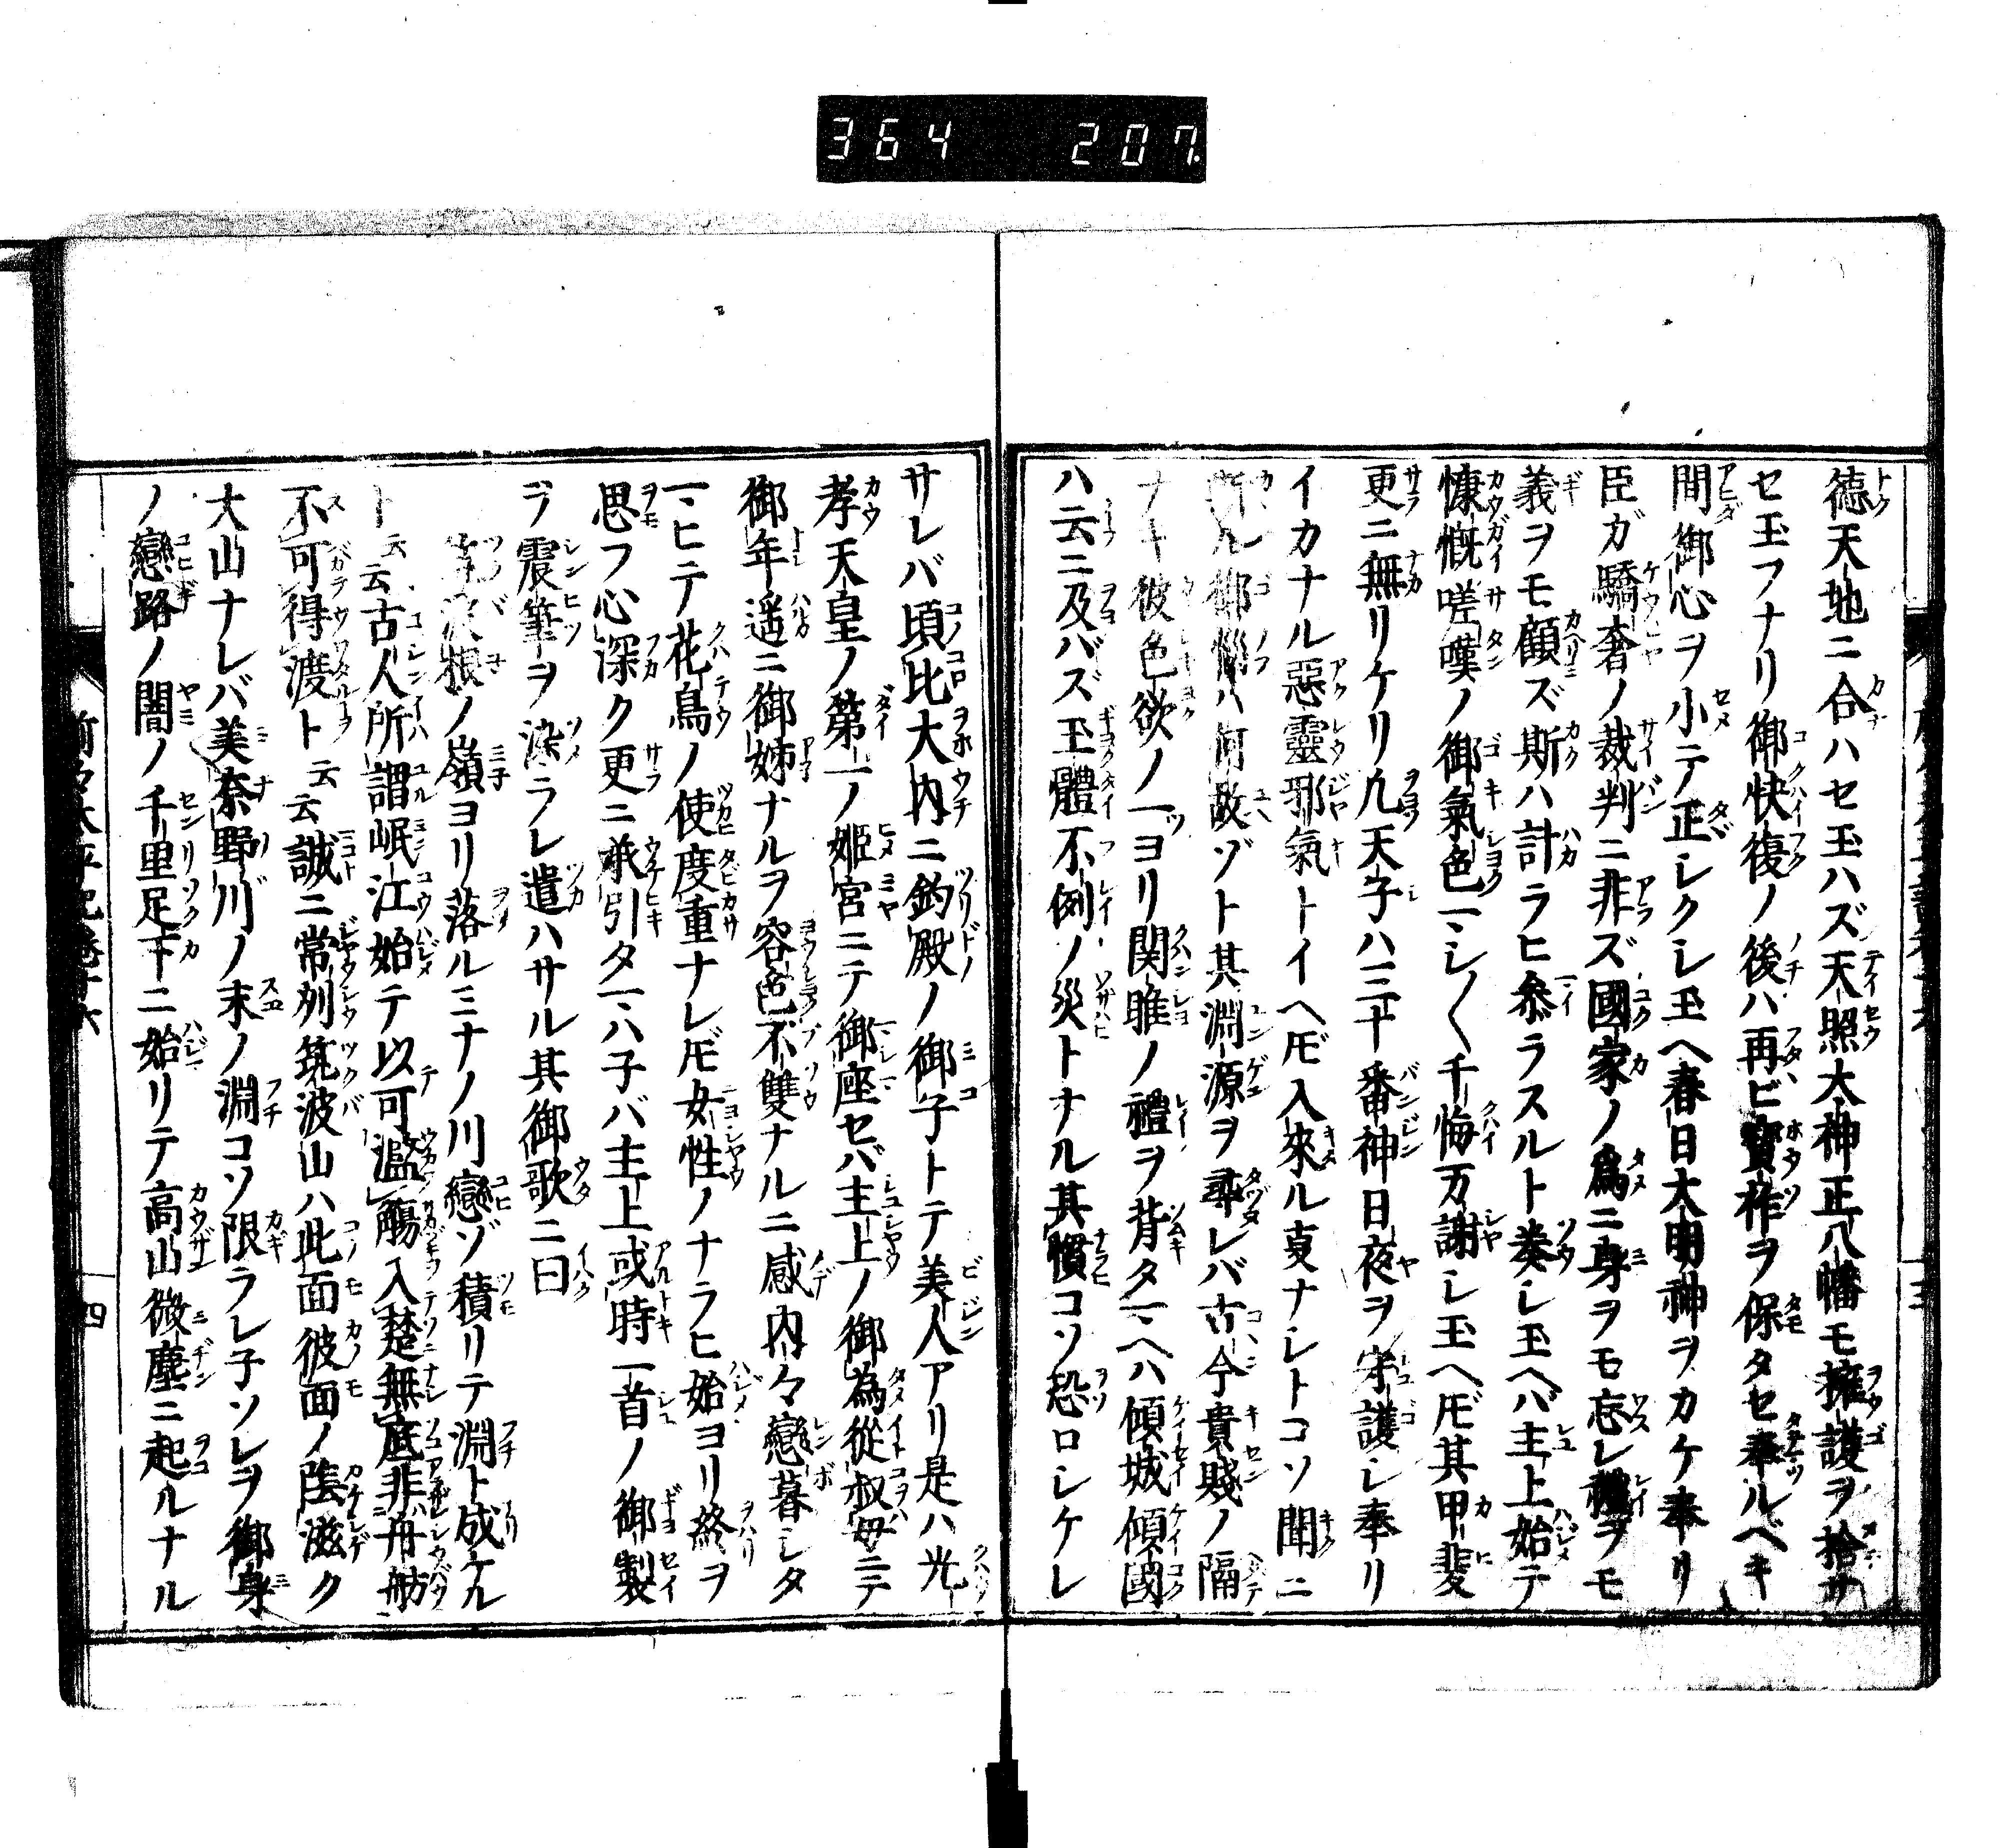 364 207
徳天地ニ合ハセ玉ハズ天照大神正八幡モ擁護ヲ捨サ
セ玉フナリ御快復ノ後ハ再ビ寳祚ヲ保タセ奉ルベキ
間御心ヲ小テ正シクシ玉ヘ春日大明神ヲカケ奉リ
臣ガ驕奢ノ裁判ニ非ズ國家ノ爲ニ身ヲモ忘レ禮ヲモ
義ヲモ顧ズ斯ハ計ラヒ參ラスルト奏シ玉ヘバ主上始テ
慷慨嗟嘆ノ御氣色マシ〱千悔万謝シ玉ヘ𪜈其甲斐
更ニ無リケリ凡天子ハ三十番神日夜ヲ守護シ奉リ
イカナル惡靈邪氣トイヘ𪜈入來ル叓ナシトコソ聞ニ
斯ル御惱ハ何故ゾト其淵源ヲ尋レバ古今貴賤ノ隔
ナキ彼色欲ノ一ヨリ関雎ノ禮ヲ背タマヘハ傾城傾國
ハ云ニ及バズ玉體不例ノ災トナル其慣コソ恐ロシケレ
サレバ頃比大内ニ釣殿ノ御子トテ美人アリ是ハ光
孝天皇ノ第一ノ姫宮ニテ御座セバ主上ノ御為從叔母ニテ
御年遥ニ御姊ナルヲ容色不雙ナルニ感内々戀暮シタ
マヒテ花鳥ノ使度重ナレ𪜈女性ノナラヒ始ヨリ終ヲ
思フ心深ク更ニ承引タマハ子バ主上或時一首ノ御製
ヲ震筆ヲ染ラレ遣ハサル其御歌ニ曰
筑波根ノ嶺ヨリ落ルミナノ川戀ゾ積リテ淵ト成ケル
ト云云古人所謂岷江始テ以可濫觴入楚無底非舟舫
不可得渡ト云云誠ニ常列筑波山ハ此面彼面ノ蔭滋ク
大山ナレバ美奈野川ノ末ノ淵コソ限ラレ子ソレヲ御身
ノ戀路ノ闇ノ千里足下ニ始リテ高山微塵ニ起ルナル
四